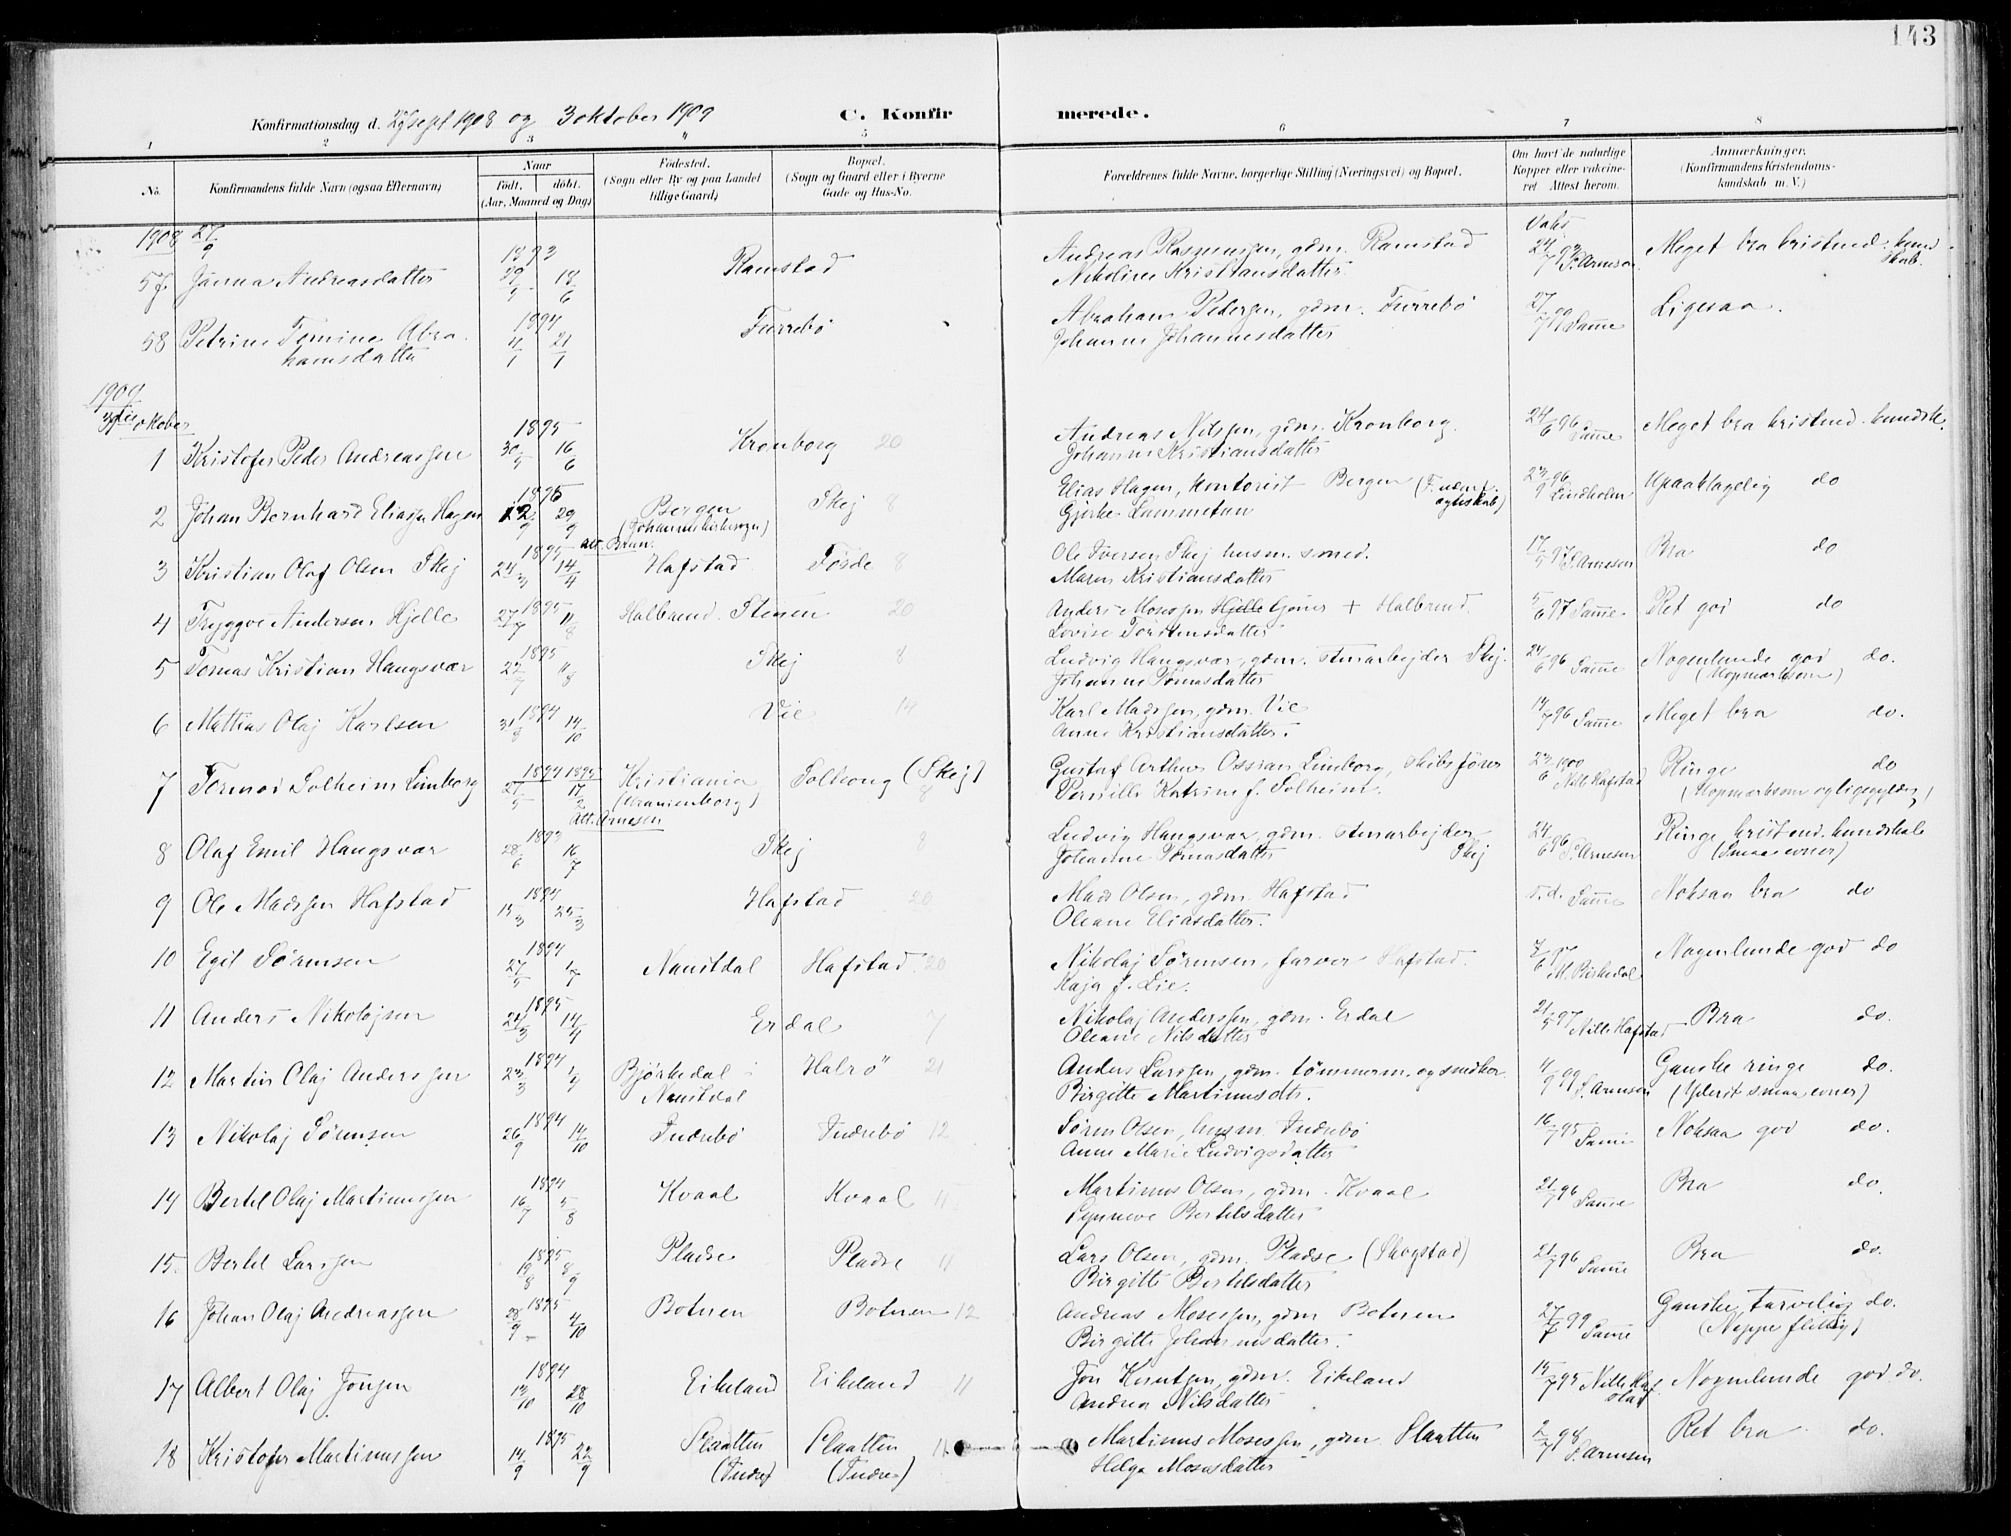 143
Konfirmationsdag d. 27 sept 1908 og 3 oktober 1909 C. Konfirmerede.
1 2 3 4 5 6 7 8
No. Konfirmandens fulde Navn (ogsaa Efternavn) Naar født. døbt. (Aar, Maaned og Dag) Fødested. (Sogn eller By og paa Landet tillige Gaard) Bopæl. (Sogn og Gaard eller i Byerne Gade og Hus-No. Forældrenes fulde Navne, borgerlige Stilling (Næringsvei) og Bopæl. Om havt de naturlige Kopper eller vakcineret Attest herom. Anmærkninger. (Konfirmandens Kristendomskundskab m. V.)
1908 27/9
57. Janna Andreasdatter 1893 29/5 18/6 Ramstad Andreas Rasmussen, gdm. Ramstad Vaks 24/7 93 S. Arnesen Meget bra kristend. kundskab.
Nikoline Kristiansdatter
58 Petrine Tomine Abrahamsdatter 1894 4/1 21/1 Furrebø Abraham Pedersen, gdm. Furrebø 27/7 00 Samme Ligesaa.
Johanne Johannesdatter
1909
3die oktober
1 Kristofer Peder Andreassen 1895 30/5 16/6 Kronborg 20 Andreas Nilssen, gdm. Kronborg 24/6 96 Samme Meget bra kristend. kundsk.
Johanne Kristiansdatter
2 Johan Bernhard Eliassen Hagen 1895 12/9 29/9 Bergen (Johanneskirkesogn) Skej 8 Elias Hagen, kontorist Bergen (F. uden f. egteskab) 23/9 96 Lindholm Upaaklagelig do
Gjerke Lammetun
3 Kristian Olaf Olsen Skej 1895 24/3 14/4 Hafstad Førde 8 Ole Iversen Skej husm. smed. 17/5 97 S. Arnesen Bra do
Maren Kristiansdatter
4 Tryggve Andersen Hjelle 1895 27/7 11/8 Halbrend Stenen 20 Anders Mosessen Hjelle + Halbrend. 5/6 97 Samme Ret god do
Lovise Torstensdatter
5 Tomas Kristian Hangsvær 1895 22/7 11/8 Skej 8 Ludvig Hangsvær, gdm. stenarbejder Skej. 24/6 96 Samme Nogenlunde god do.
Johanne Tomasdatter (Uopmærksom)
6 Mathias Olaj Karlsen 1894 31/8 14/10 Vie 14 Karl Madssen, gdm. Vie 14/7 96 Samme Meget bra do.
Anne Kristiansdatter.
7 Tormod Solheim Limborg 1894 27/5 1895 17/2 Att. Arnesen Kristiania (Uranienborg) Solhong (Skej) 8 Gustaf Arthur Ossian Limborg, skibsfører 23/6 1900 Nille Hafstad Ringe do
Pernille Katrine f. Solheim. (Uopmærksom og ligegyldig)
8 Olaf Emil Hangsvær 1893 28/6 16/7 Skej 8 Ludvig Hangsvær, gdm. stenarbejder Skej 24/6 96 S. Arnesen Ringe kristend. kundskab
Johanne Tomasdatter (Smaa evner)
9 Ole Madssen Hafstad 1894 15/3 25/3 Hafstad 20 Mads Olsen, gdm. Hafstad s. d. Samme Noksaa bra do
Oleane Eliasdatter.
10 Egil Sørensen 1894 27/5 1/7 Naustdal Hafstad 20 Nikolaj Sørensen, farver Hafstad. 7/6 97 M. Birkedal Nogenlunde god do
Kaja f. Lie.
11 Anders Nikolajsen 1895 24/3 14/4 Erdal 7 Nikolaj Anderssen, gdm. Erdal 21/5 97 Nille Hafstad Bra do.
Oleane Nilsdatter
12 Martin Olaj Anderssen 1894 23/3 1/4 Bjørkedal i Naustdal Halrø 21 Anders Larssen, gdm. tømmerm. og snedker 4/9 99 S. Arnesen Ganske ringe do.
Birgitte Martinusdtr. (Yderst smaa evner)
13 Nikolaj Sørensen 1894 26/9 14/10 Indrebø Indrebø 12 Søren Olsen, husm. Indrebø 16/7 95 Samme Noksaa god do.
Anne Marie Ludvigsdatter
14 Bertel Olaj Martinussen 1894 16/7 5/8 Kvaal Kvaal 11 Martinus Olsen, gdm. Kvaal 21/7 96 Samme Bra do.
Synneve Bertelsdatter
15. Bertel Larssen 1895 19/8 8/9 Pladse Pladse 11 Lars Olsen, gdm. Pladse (Skogstad) 21/7 96 Samme Bra do.
Birgitte Bertelsdatter
16 Johan Olaj Andreassen 1895 28/9 4/10 Botnen Botnen 12 Andreas Mosessen, gdm Botnen 27/7 99 Samme Ganske tarvelig do.
Birgitte Johannesdatter. (Neppe flittig)
17 Albert Olaj Jonsen 1894 13/10 28/10 Eikeland Eikeland 11 Jon Knutsen, gdm. Eikeland 15/7 95 Nille Hafstad Nogenlunde god do.
Andrea Nilsdatter
18 Kristofer Martinussen 1895 14/9 22/9 Slaatten (Indre) Slaatten (Indre) 11 Martinus Mosessen, gdm. Slaatten 2/7 98 S. Arnesen Ret bra do.
Helga Mosesdatter